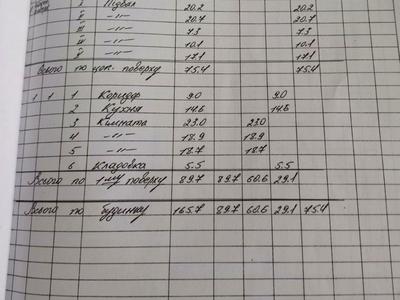 I Підвал 20.2 20.2
II -"- 20.7 20.7
III -"- 7.3 7.3
-"- 10.1 10.1
V -"- 17.1 17.1
Всього по цок. поверху 75.4 75.4
1 1 1 Коридор 9.0 9.0
2 Кухня 14.6 14.6
3 Кімната 23.0 23.0
4 -"- 18.9 18.9
5 -"- 18.7 18.7
6 Кладовка 5.5 5.5
Всього по 1му поверху 89.7 89.7 60.6 29.1
Всього по будинку 165.1 89.7 60.6 29.1 75.4